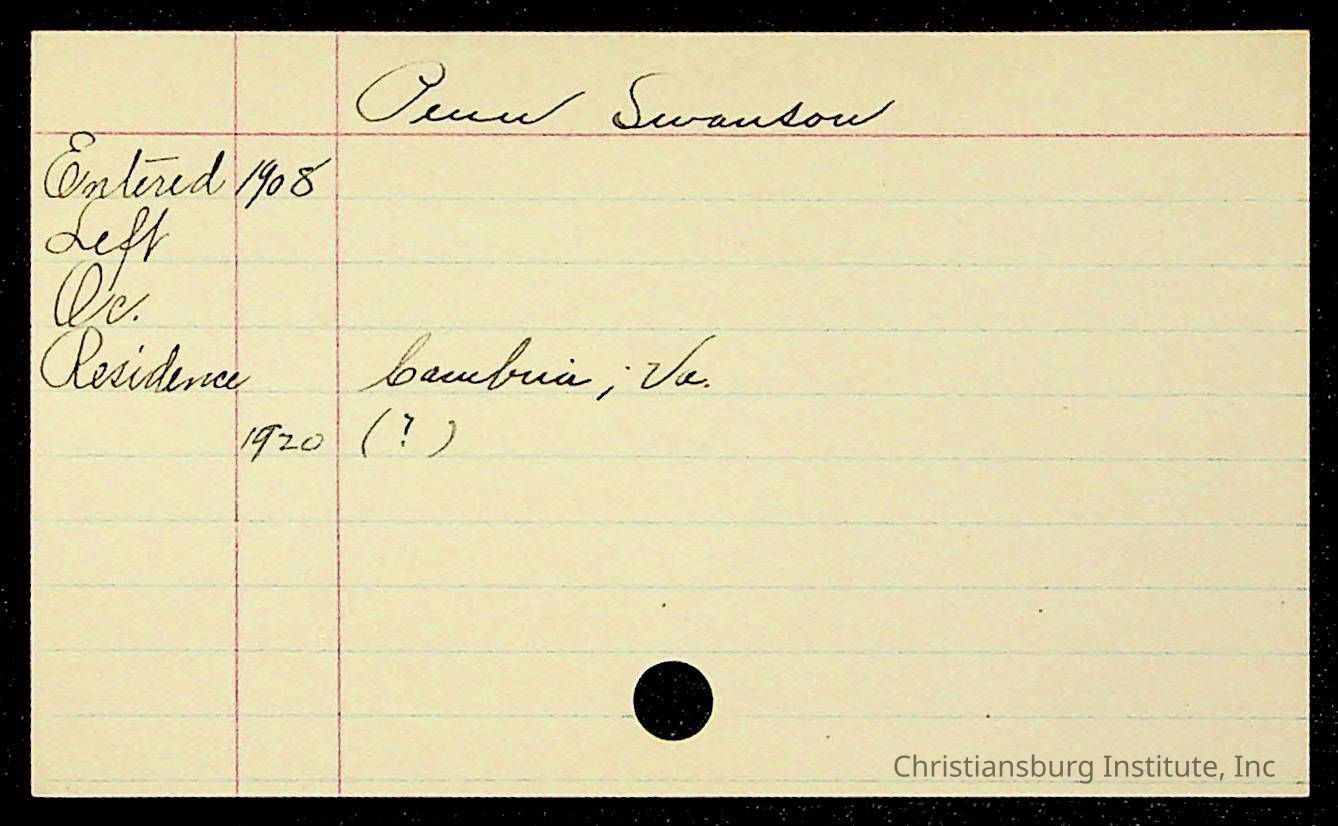 Penn Swanson
Entered 1908
Left
Oc.
Residence Cambria, Va.
1920 (?)
Christiansburg Institute, Inc